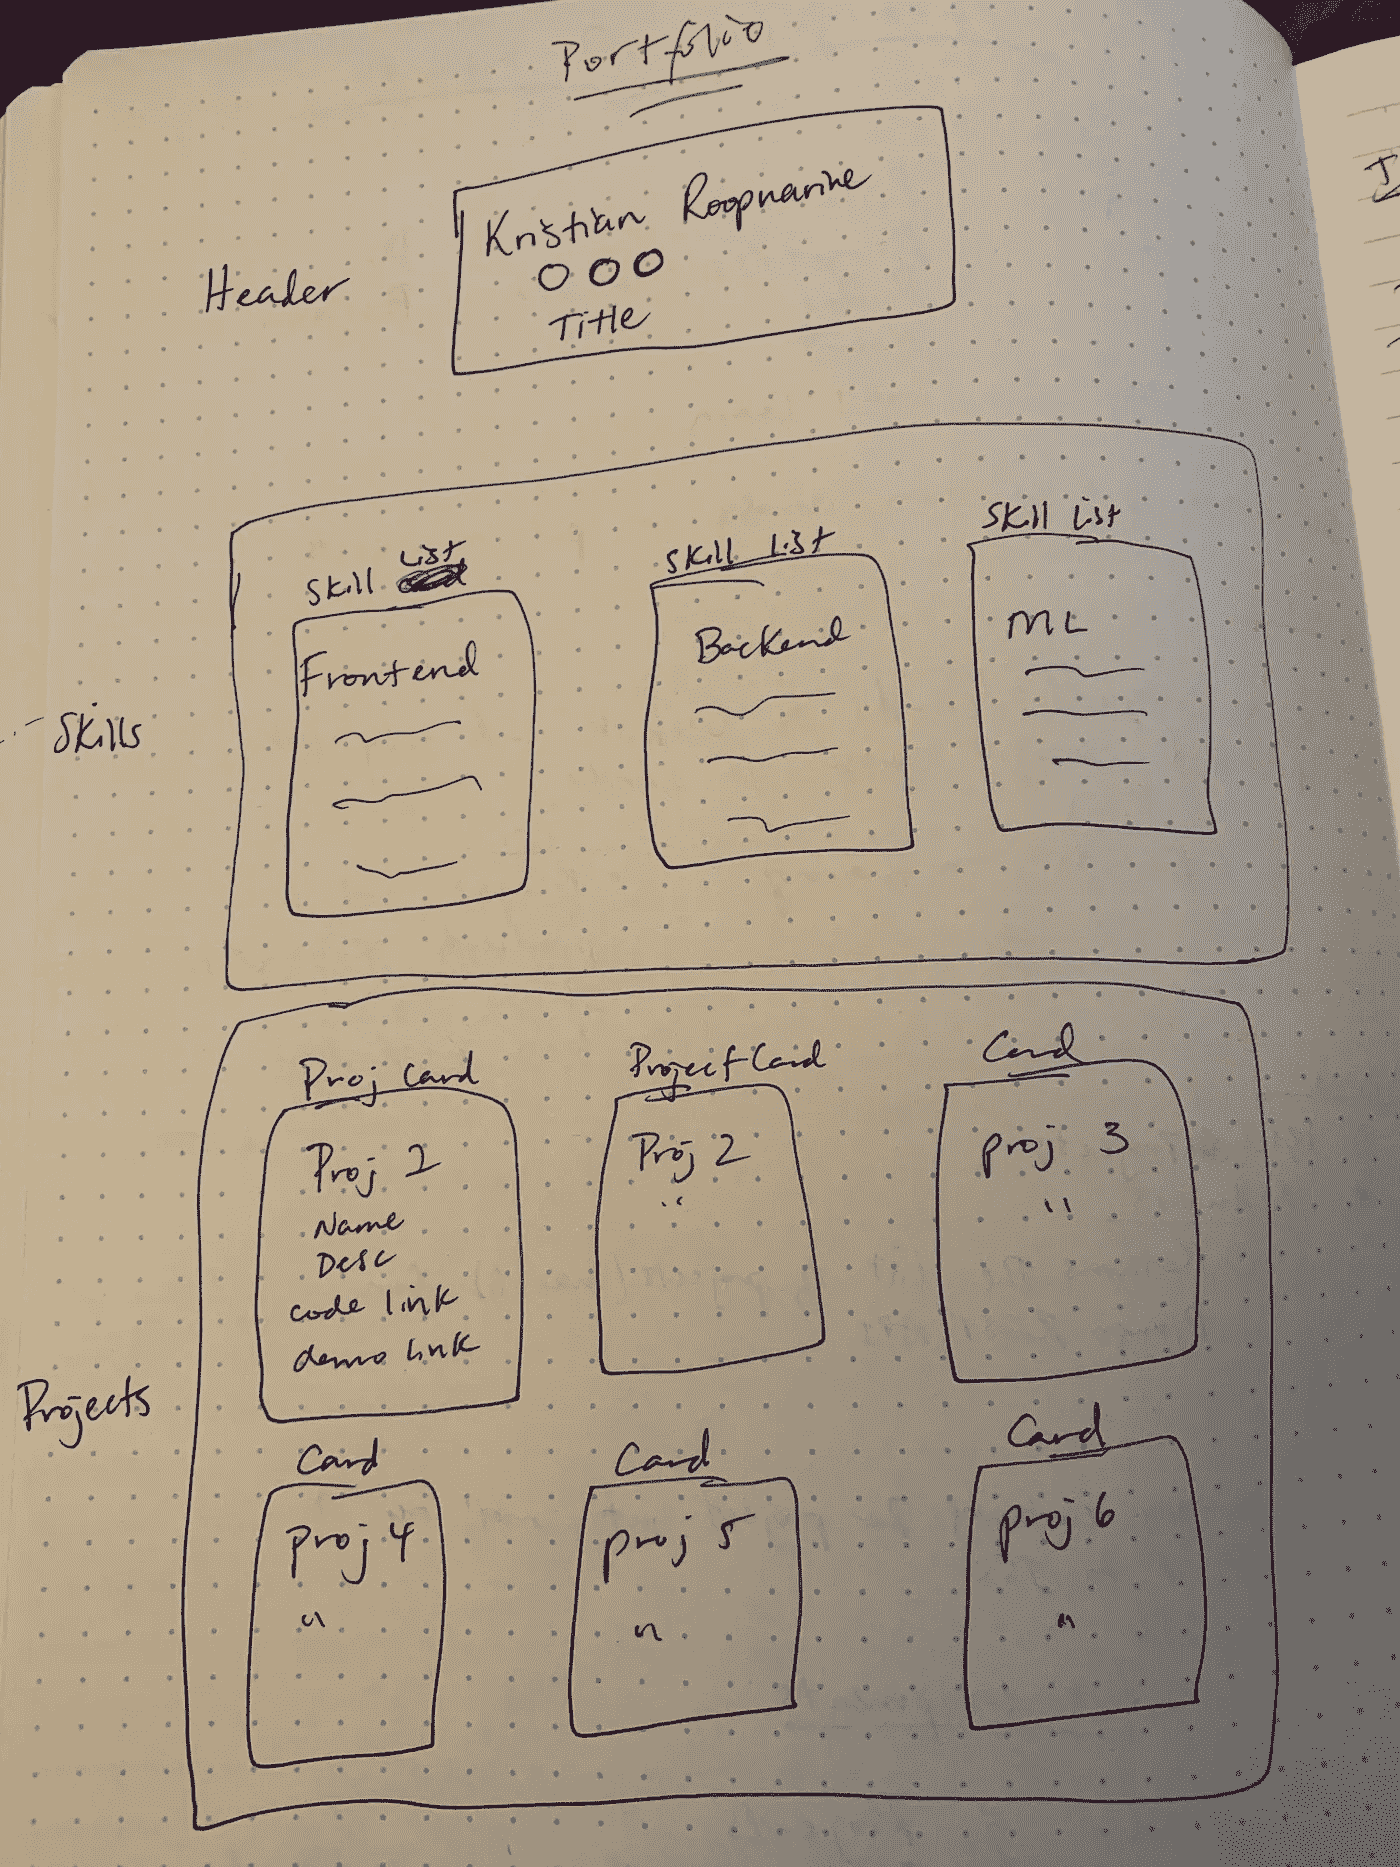 Portfolio
Header
Kristian Roopnarine
Title
Skills
Skill List
Frontend
Skill List
Backend
Skill List
ML
Projects
Proj Card
Proj 1
Name
Desc
code link
demo link
Project Card
Proj 2
"
Card
proj 3
"
Card
proj 4
"
Card
proj 5
"
Card
proj 6
"